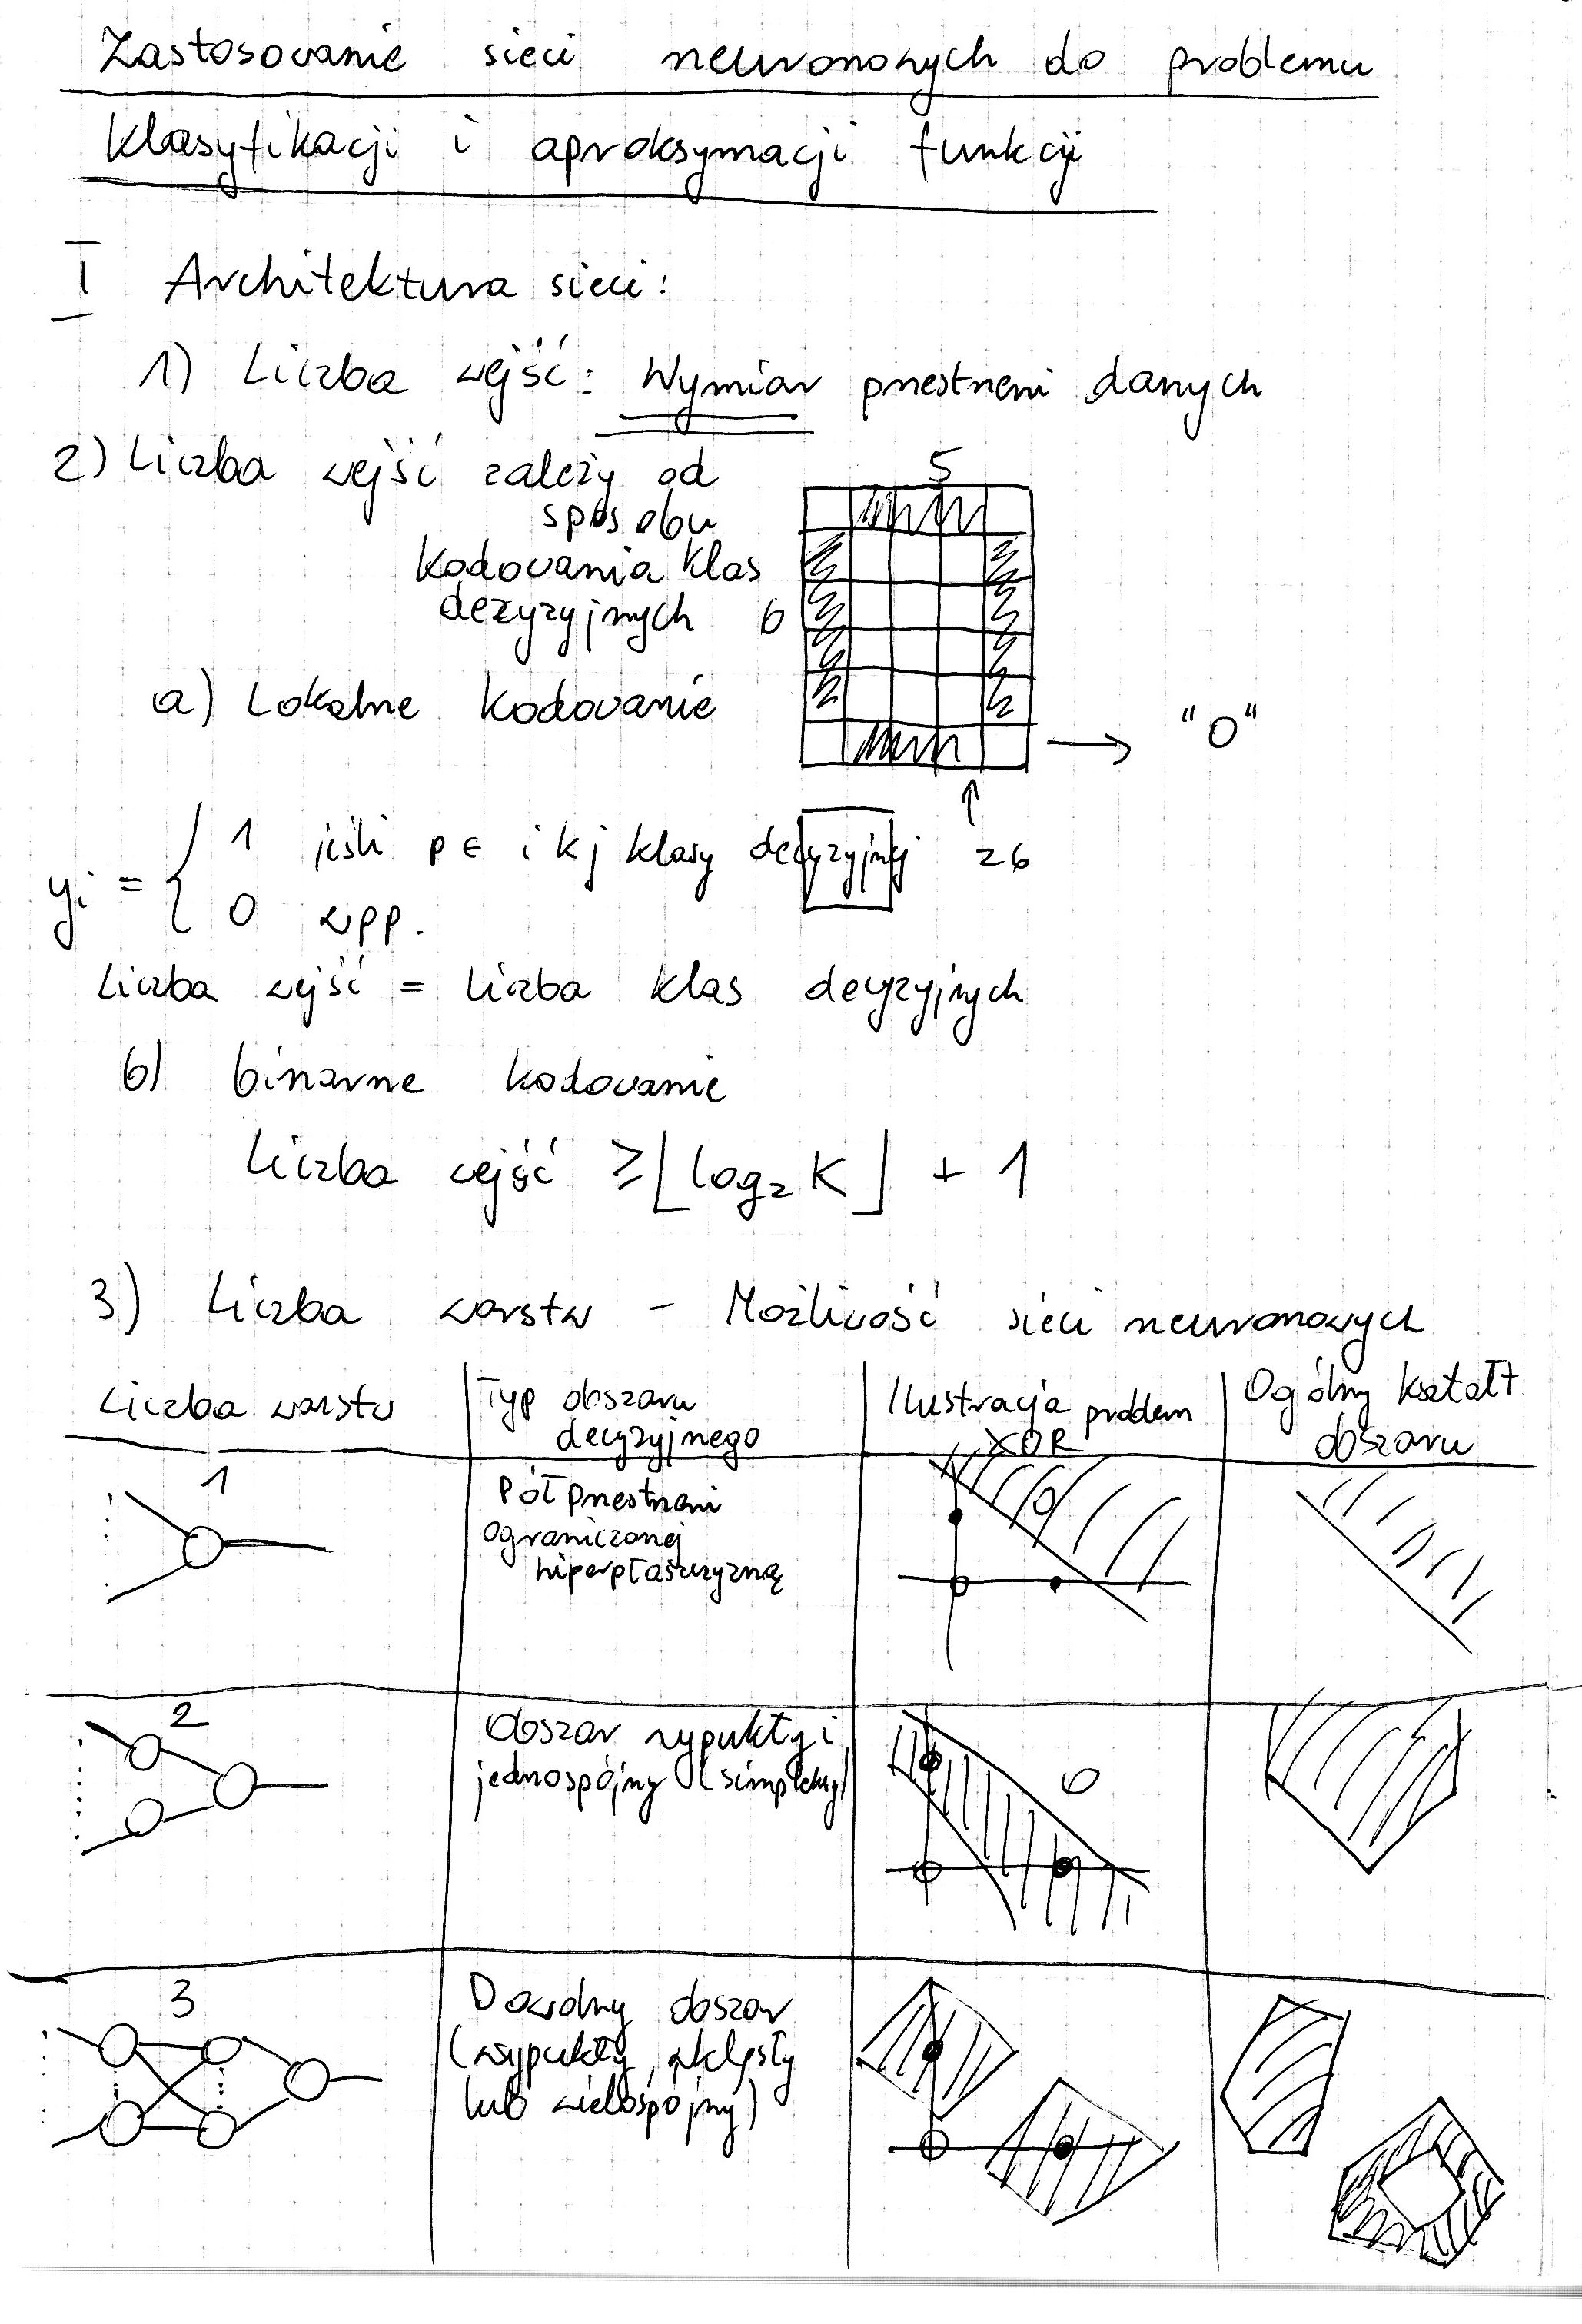 Zastosowanie sieci neuronowych do problemu
klasyfikacji i aproksymacji funkcji
I Architektura sieci:
1) Liczba wejść: Wymiar przestrzeni danych
2) Liczba wejść zależy od
sposobu
kodowania klas
decyzyjnych
5
6
a) Lokalne kodowanie
→ "O"
↑
26
yi = { 1 jeśli p ∈ i kj klasy decyzyjnej
0 wpp.
Liczba wejść = liczba klas decyzyjnych
b) binarne kodowanie
Liczba wejść ≥ ⌊log₂ K⌋ + 1
3) Liczba warstw - Możliwość sieci neuronowych
Liczba warstw
Typ obszaru
decyzyjnego
Ilustracja problem
XOR
Ogólny kształt
obszaru
1
Pół przestrzeni
ograniczonej
hiperpłaszczyzną
2
Obszar wypukły i
jednospójny (simpleksy)
3
Dowolny obszar
(wypukły, wklęsły
lub wielospójny)